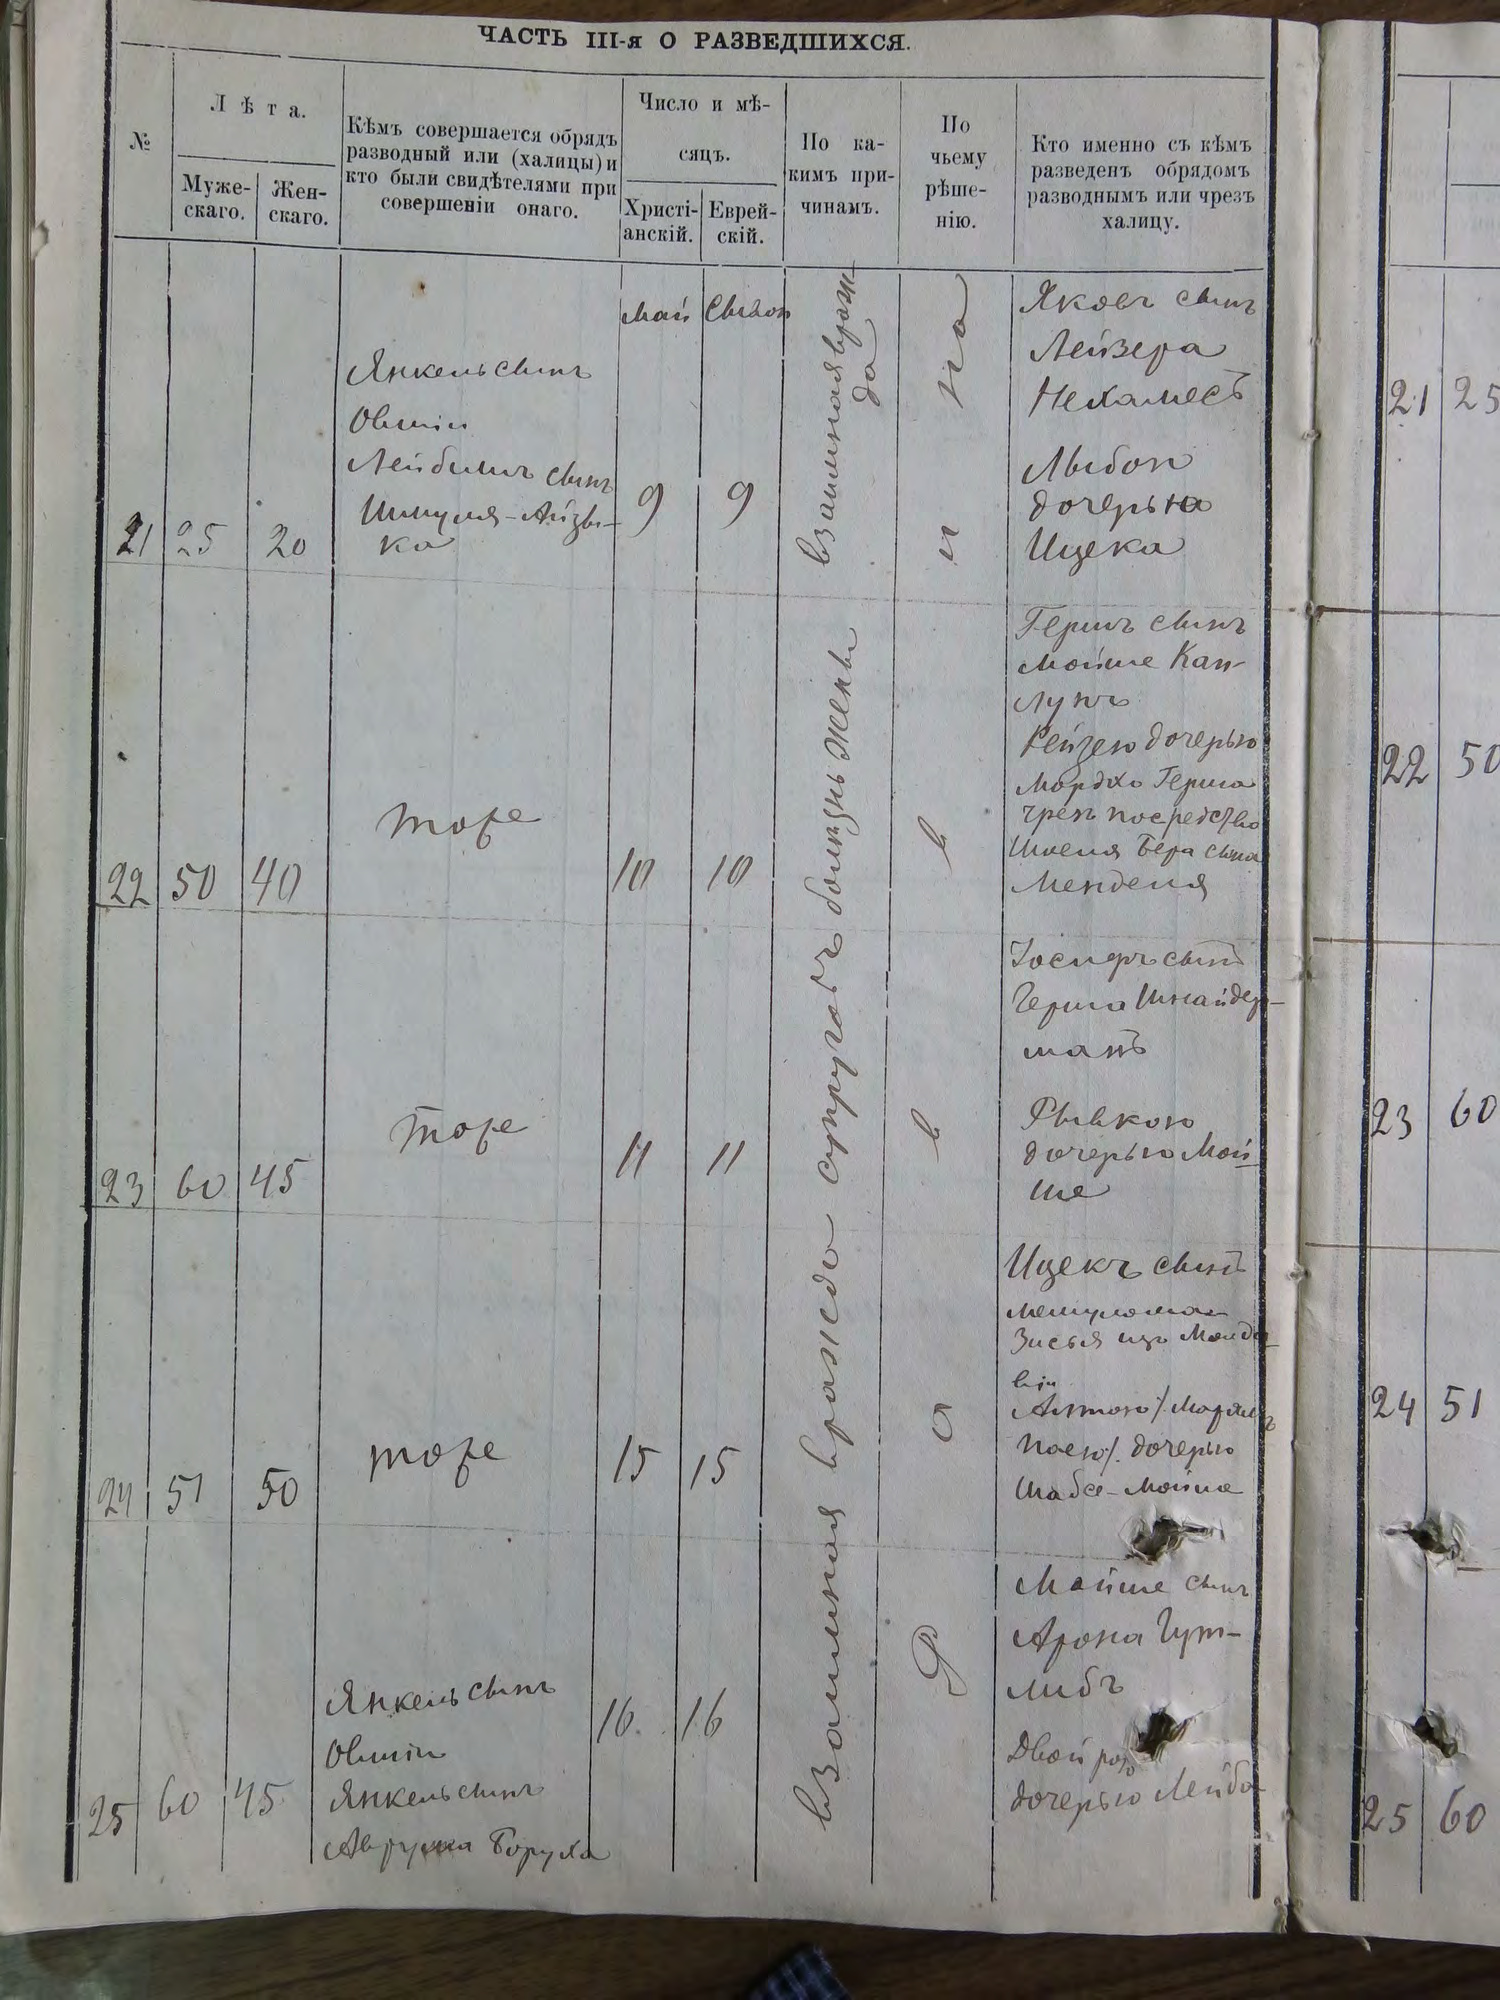 ЧАСТЬ III-я О РАЗВЕДШИХСЯ.
№
Лѣта.
Муже-
скаго.
Жен-
скаго.
Кѣмъ совершается обрядъ
разводный или (халицы) и
кто были свидѣтелями при
совершеніи онаго.
Число и мѣ-
сяцъ.
Христі-
анскій.
Еврей-
скій.
По ка-
кимъ при-
чинамъ.
По
чьему
рѣше-
нію.
Кто именно съ кѣмъ
разведенъ обрядомъ
разводнымъ или чрезъ
халицу.
Май
21
25
20
Янкель сынъ
Овшіи
Лейбишъ сынъ
Шмуля-Айзы-
ка
9
9
взаимная враж
да
Яковъ сынъ
Лейзера
Нехамесъ
дочерью
Ицека
22
50
40
тоже
10
10
взаимная вражда супруговъ болѣзнь жены
Гершъ сынъ
Мойше Кап-
лунъ
Рейзею дочерью
Мордко Герша
чрезъ посредство
Шмеля Бера сына
Менделя
23
60
45
тоже
11
11
Іосифъ сынъ
Герша Шнайдер-
манъ
Рывкою
дочерью Мой-
ше
24
51
50
тоже
15
15
Ицекъ сынъ
Мешулема
Зисья изъ Молда-
віи
дочерью
Шабсе-Мойше
25
60
45
Янкель сынъ
Овшіи
Янкель сынъ
Аврума Боруха
16
16
Мойше сынъ
Арона Гут-
либъ
Двойрою
дочерью Лейба
21
25
22
50
23
60
24
51
25
60